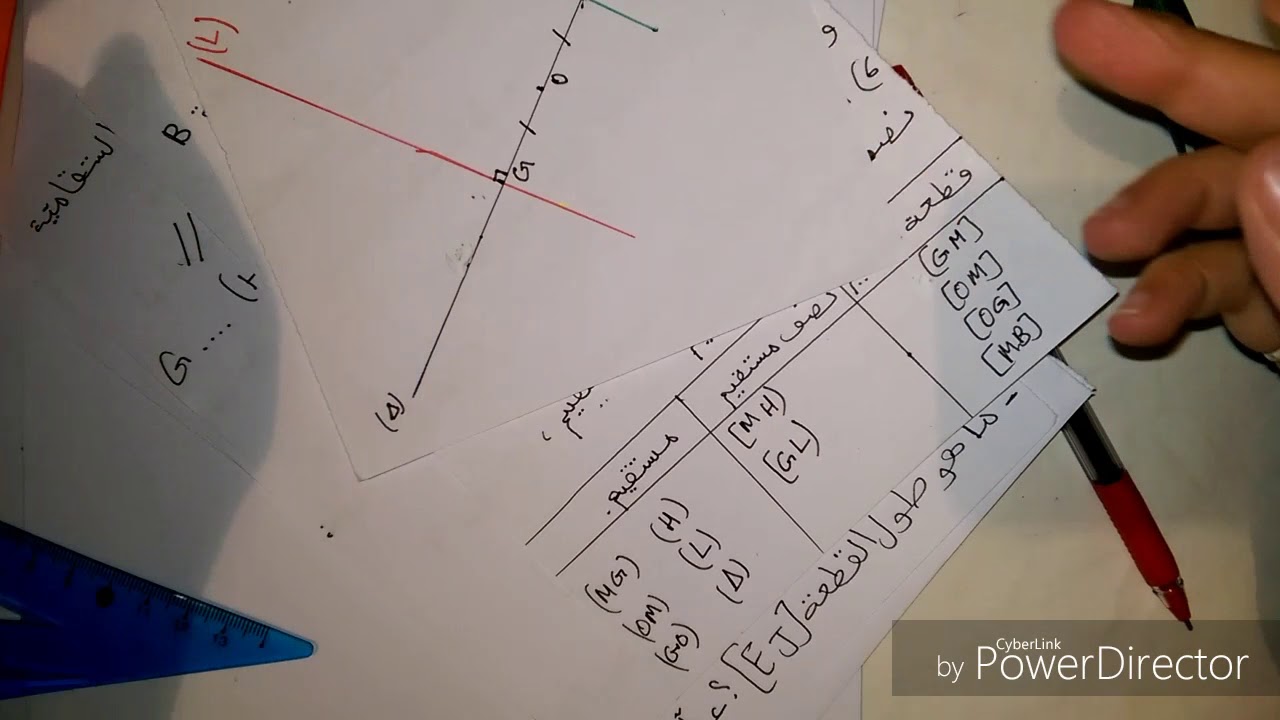 (L)
O
G
(Δ)
B
//
G .... (L)
6)
و
قطعة
[GM]
[OM]
[OG]
[MB]
نصف مستقيم
[MH)
[GL)
مستقيم
(H)
(L)
(Δ)
(MG)
(OM)
(GO)
- ما هو طول القطعة [EJ] ؟
CyberLink
by PowerDirector